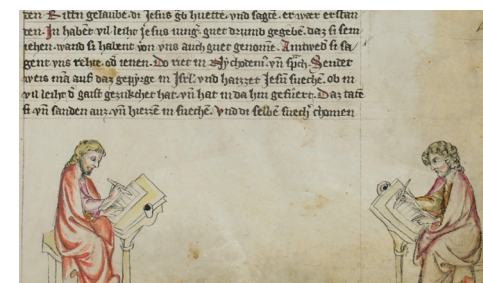 ten. Rittn gelaube. di Jesus gͦb huette. vnd sagte. er wær erstan
den. In habet vil leiht Jesus iung. guet drumb gegebē. daz si sem
iehen. wand si habent von vns auch guet genomē. Antwed si sa
gent vns rehte. od ienen. Do riet in Nychodem. vn̄ sp̄ch. Sendet
weis mā auf daz gepirge in Jsrl. vnd haizzet Jesū suechē. ob in
vil leiht d gaist gezukchet hat. vn̄ hat in da hin gefuert. Daz tatē
si. vn̄ sanden auz. vn̄ hiezzē in suechē. Vnd di selbē suech chomen